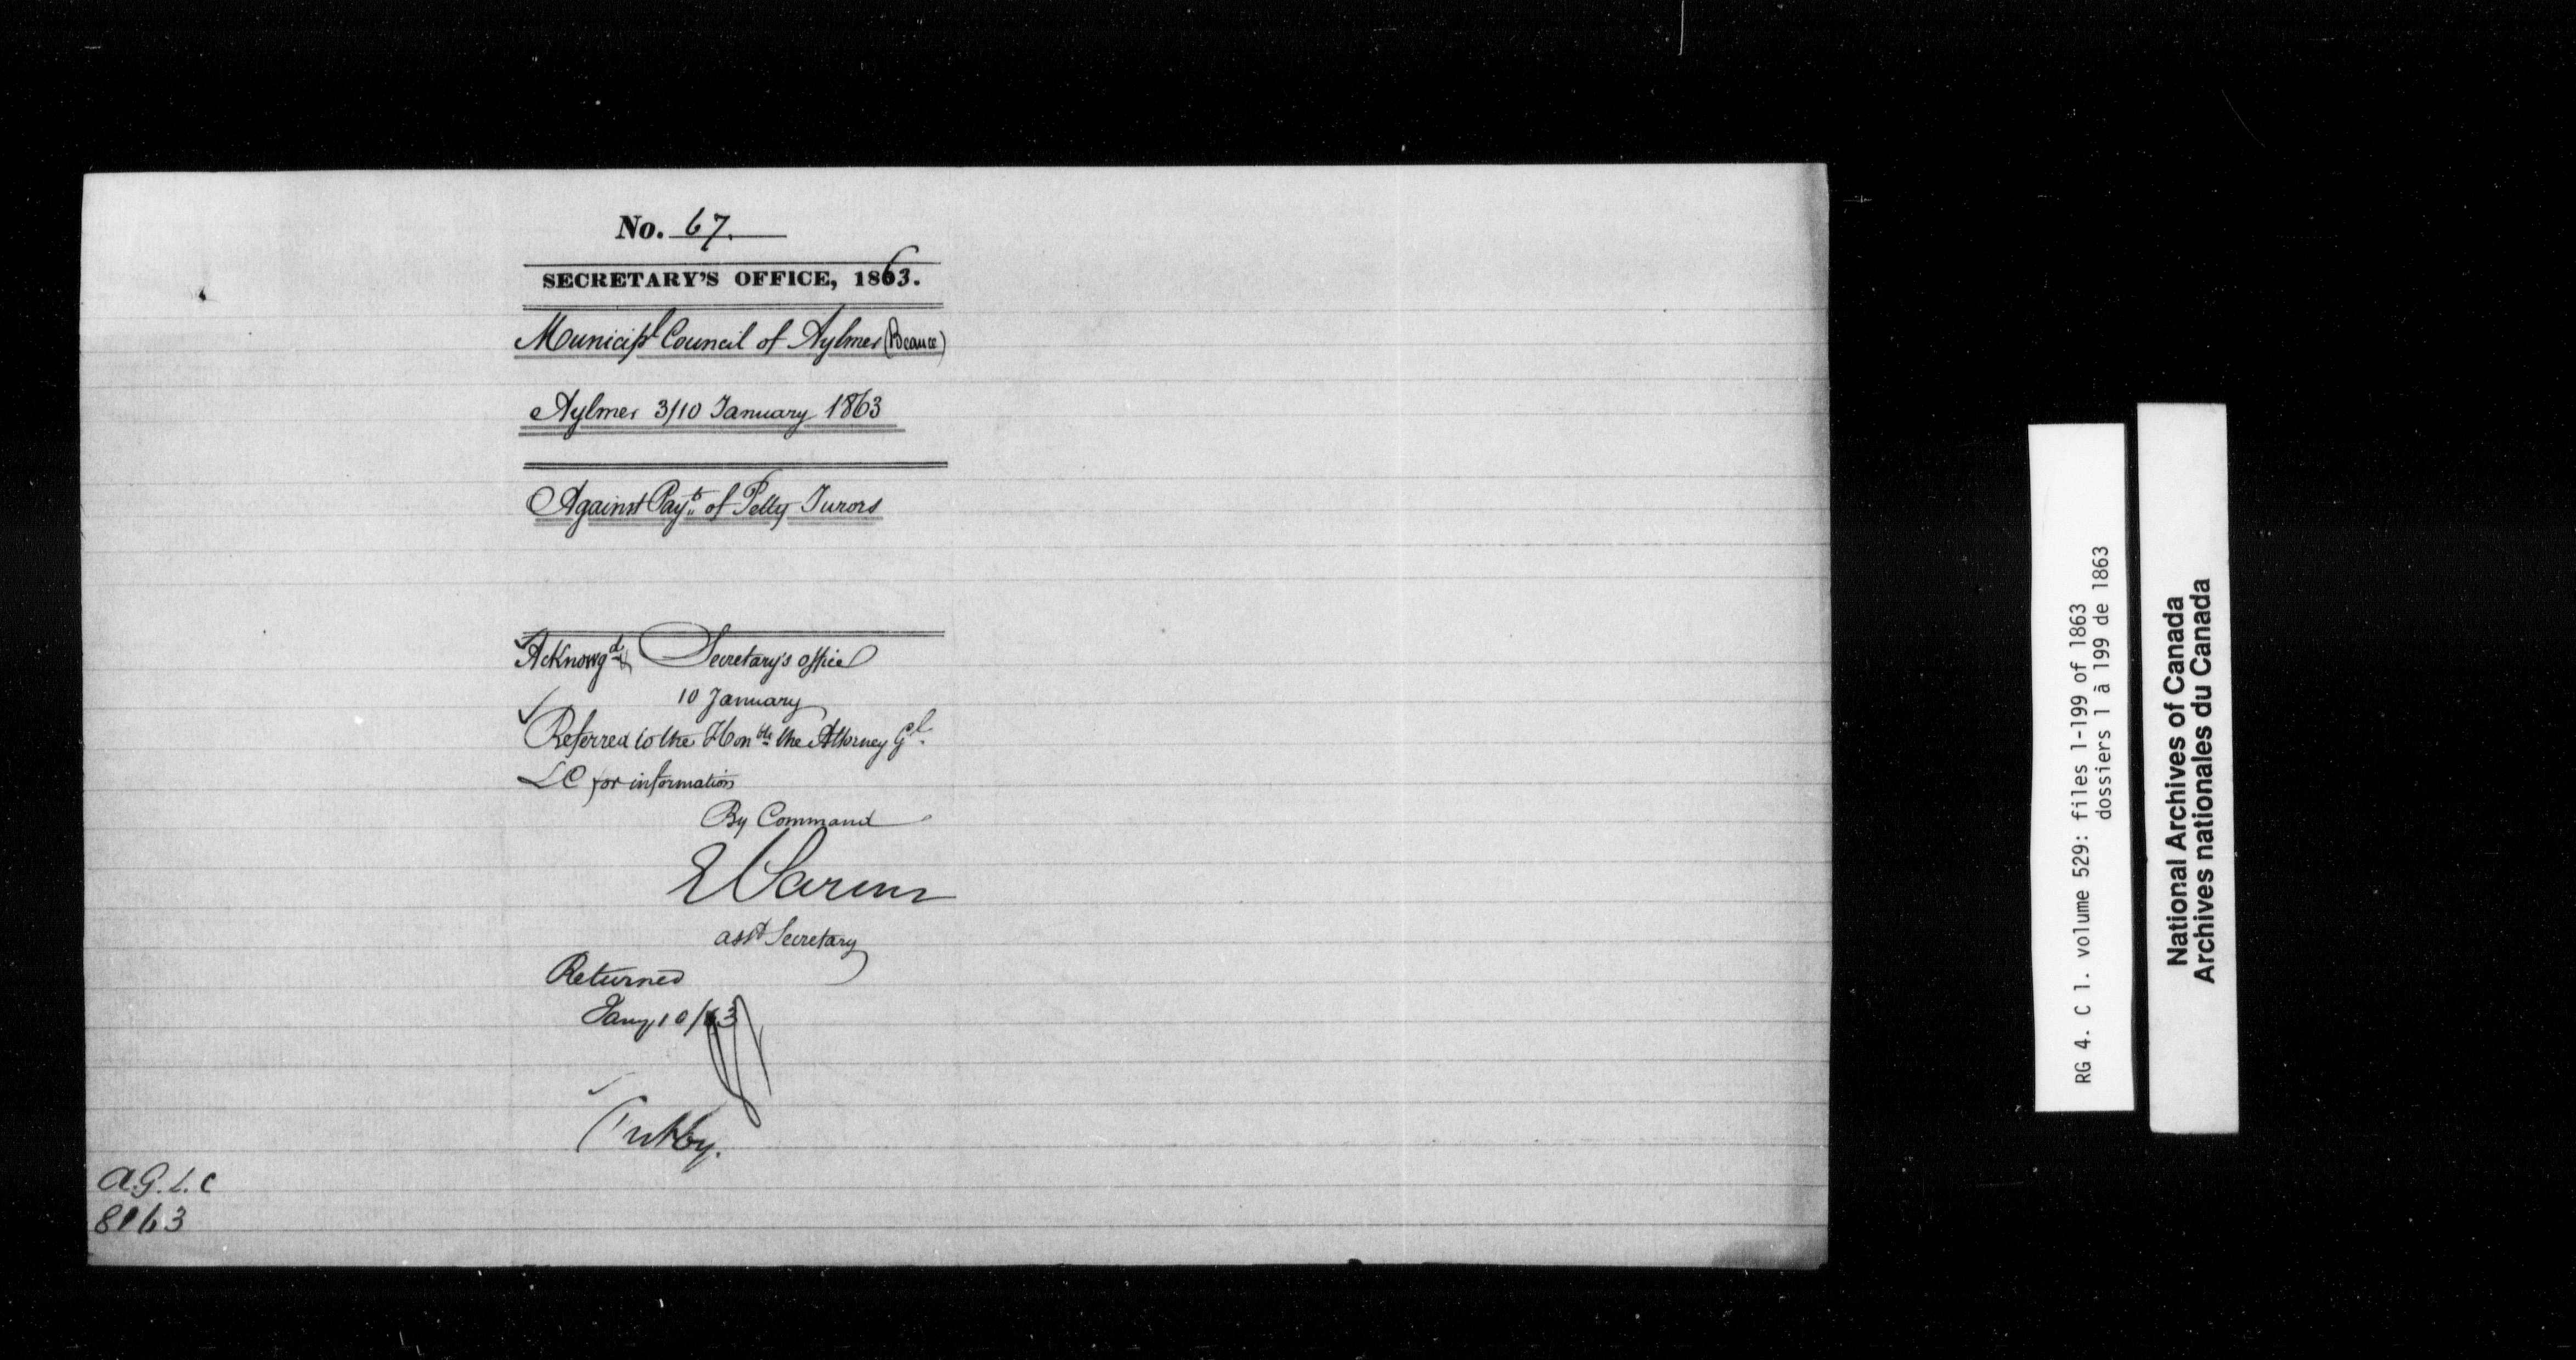 No. 67.
SECRETARY'S OFFICE, 1863.
Municipl Council of Aylmer (Beauce)
Aylmer 3/10 January 1863
Against Payt of Petty Jurors
Acknowgd Secretary's office
10 January
Referred to the Honble the Attorney Gl
LC for information
By Command
E Parent
asst Secretary
Returned
Jany 10/63
A.G.L.C
8163
RG 4. C 1. volume 529: files 1-199 of 1863
dossiers 1 à 199 de 1863
National Archives of Canada
Archives nationales du Canada